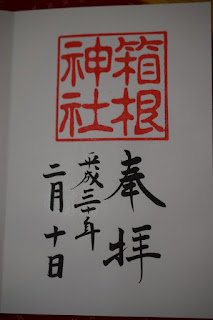 箱根
神社
奉拝
平成三十年
二月十日